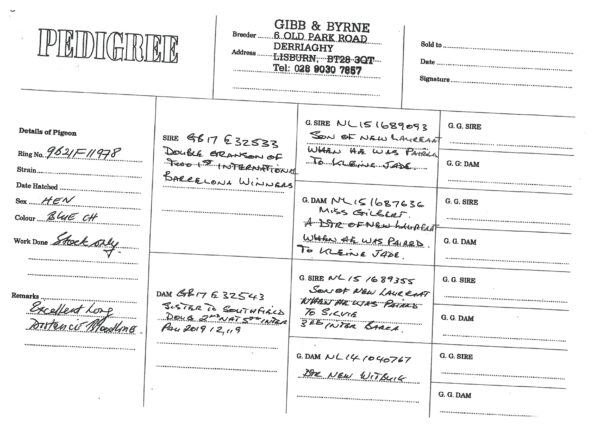 PEDIGREE
GIBB & BYRNE
Breeder 6 OLD PARK ROAD
DERRIAGHY
Address LISBURN, BT28 3QT
Tel: 028 9030 7857
Sold to
Date
Signature
Details of Pigeon
Ring No.
Strain
Date Hatched
Sex HEN
Colour BLUE CH
Work Done Stock only.
Remarks
Excellent Long
Distance Bloodline.
SIRE GB17 E32533
DOUBLE GRANSON OF
TWO 1ST INTERNATIONAL
BARCELONA WINNERS
DAM GB17 E32543
SISTER TO SOUTHFIELD
DOUG 2ND NAT 5TH INTER
PAU 2019
G. SIRE NL15 1689093
SON OF NEW LAUREAAT
WHEN HE WAS PAIRED
TO KLEINE JADE.
G. DAM NL15 1687636
MISS GILBERT.
A DTR OF NEW LAUREAAT
WHEN HE WAS PAIRED.
TO KLEINE JADE.
G. SIRE NL15 1689355
SON OF NEW LAUREAAT
WHEN HE WAS PAIRED
TO SILVIE
3RD INTER BARCA.
G. DAM NL14 1040767
DTR NEW WITBUIK
G. G. SIRE
G. G: DAM
G. G. SIRE
G. G. DAM
G. G. SIRE
G. G. DAM
G. G. SIRE
G. G. DAM